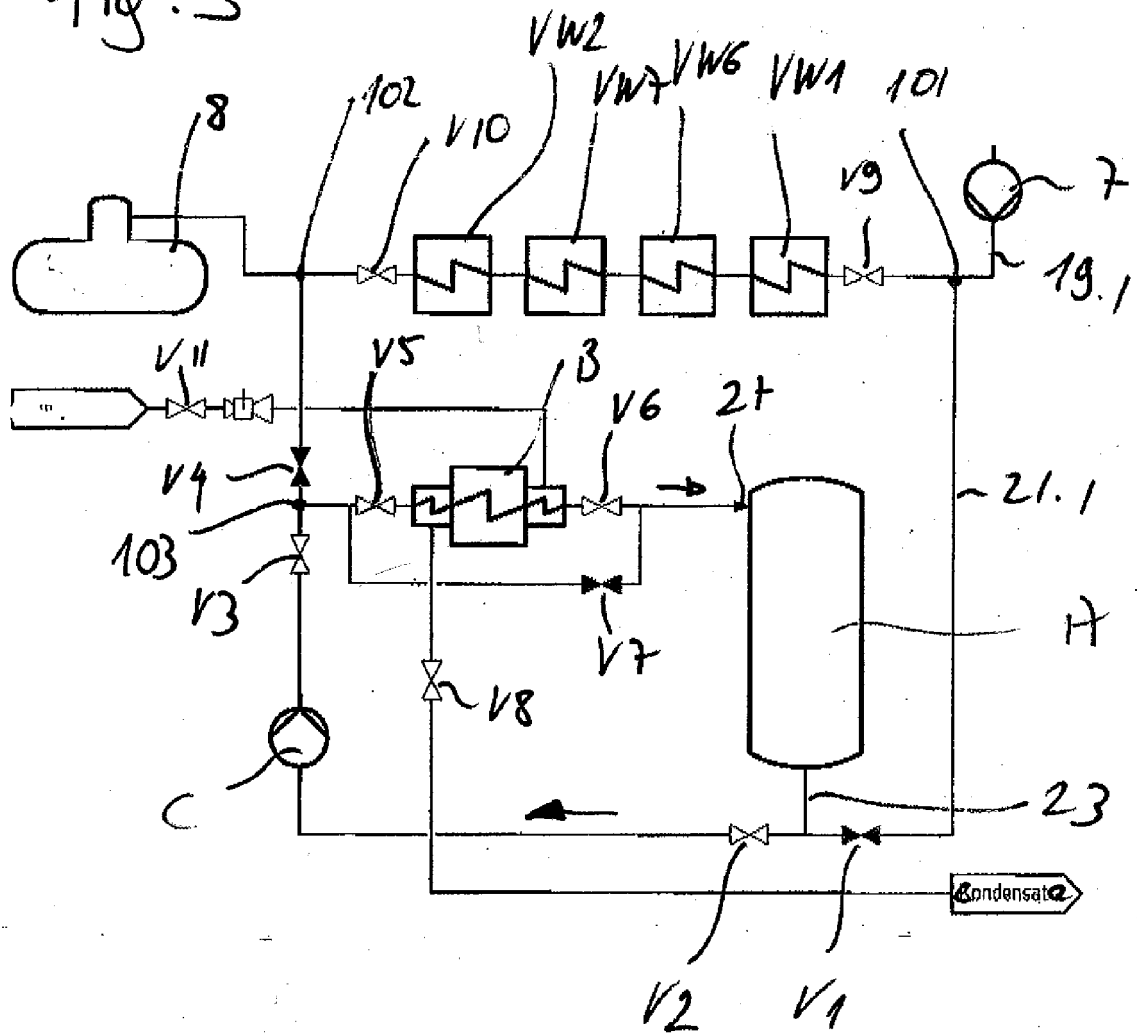 Fig. 3
VW2
VW7
VW6
VW1
101
102
8
V10
V9
7
19.1
V11
V5
B
V6
2+
V4
21.1
103
V3
V7
A
V8
C
23
Condensate
V2
V1